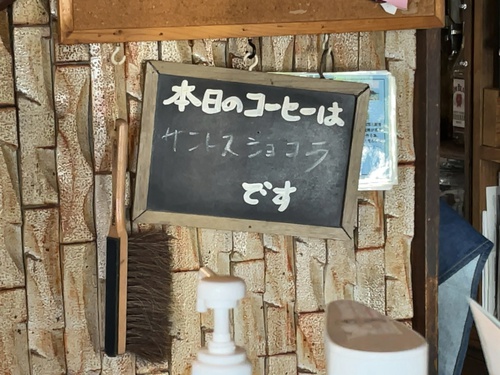 本日のコーヒーは
サントス ショコラ
です